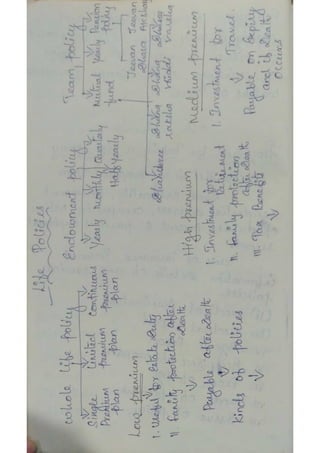 Life Policies
Whole life policy
Single Premium Plan
Limited premium plan
Continuous premium plan
Low premium
I. Useful for Estate Duty
II Family protection after death
Payable after death
Kinds of policies
Endowment policy
Yearly monthly Quarterly
Half yearly
High premium
I. Investment for retirement
II. family protection after death
III. Tax Benefits
Team policy
Mutual fund
Yearly
Pension policy
Jeevan
Jeevan
Medium premium
I. Investment for Travel.
Payable on Expiry and if death occurs